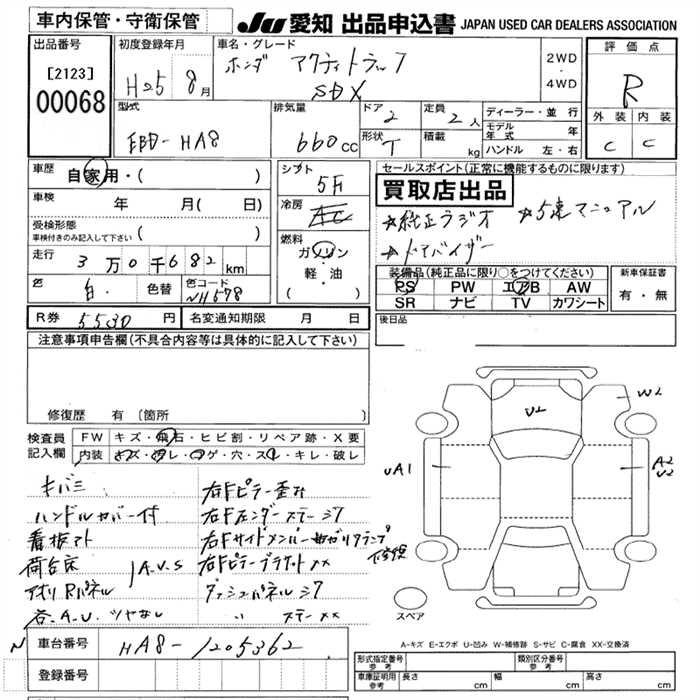 車内保管・守衛保管
JU 愛知 出品申込書 JAPAN USED CAR DEALERS ASSOCIATION
出品番号
[2123]
00068
初度登録年月
H25 8月
車名・グレード
ホンダ アクティトラック
SDX
2WD
・
4WD
評価点
R
外装 内装
C C
型式
EBD-HA8
排気量
660cc
ドア 2
形状 T
定員 2人
積載 kg
ディーラー・並行
モデル年式 年
ハンドル 左・右
車歴 自家用・( )
車検 年 月( 日)
受検形態
車検付きのみ記入して下さい ( )
走行 3万0千682km
色 白 色替 色コード NH578
シフト 5F
冷房 AC
燃料
ガソリン
・
軽・油
( )
セールスポイント(正常に機能するものに限ります)
買取店出品
☆純正ラジオ ☆5速マニュアル
☆ドアバイザー
装備品(純正品に限り○をつけてください)
PS PW エアB AW
SR ナビ TV カワシート
新車保証書
有・無
R券 5530円 名変通知期限 月 日
後日品
注意事項申告欄(不具合内容等は具体的に記入して下さい)
修復歴 有(箇所
検査員記入欄
FW キズ・飛石・ヒビ割・リペア跡・X要
内装 キズ・汚レ・コゲ・穴・スレ・キレ・破レ
キバミ
ハンドルカバー付
看板アト
荷台床
アオリRパネル
A.U.S
各.A.U. ツヤなし
右Fピラー歪み
右Fフェンダーステーシワ
右Fサイドメンバー曲
右Fピラーブラケットxx
ダッシュパネルシワ
〃 ステーxx
U2
W2
UA1
A2
U2
スペア
A-キズ E-エクボ U-凹み W-補修跡 S-サビ C-腐食 XX-交換済
車台番号 HA8-1205362
登録番号
形式指定番号 参考
類別区分番号 参考
車庫証明用 参考 長さ cm 幅 cm 高さ cm